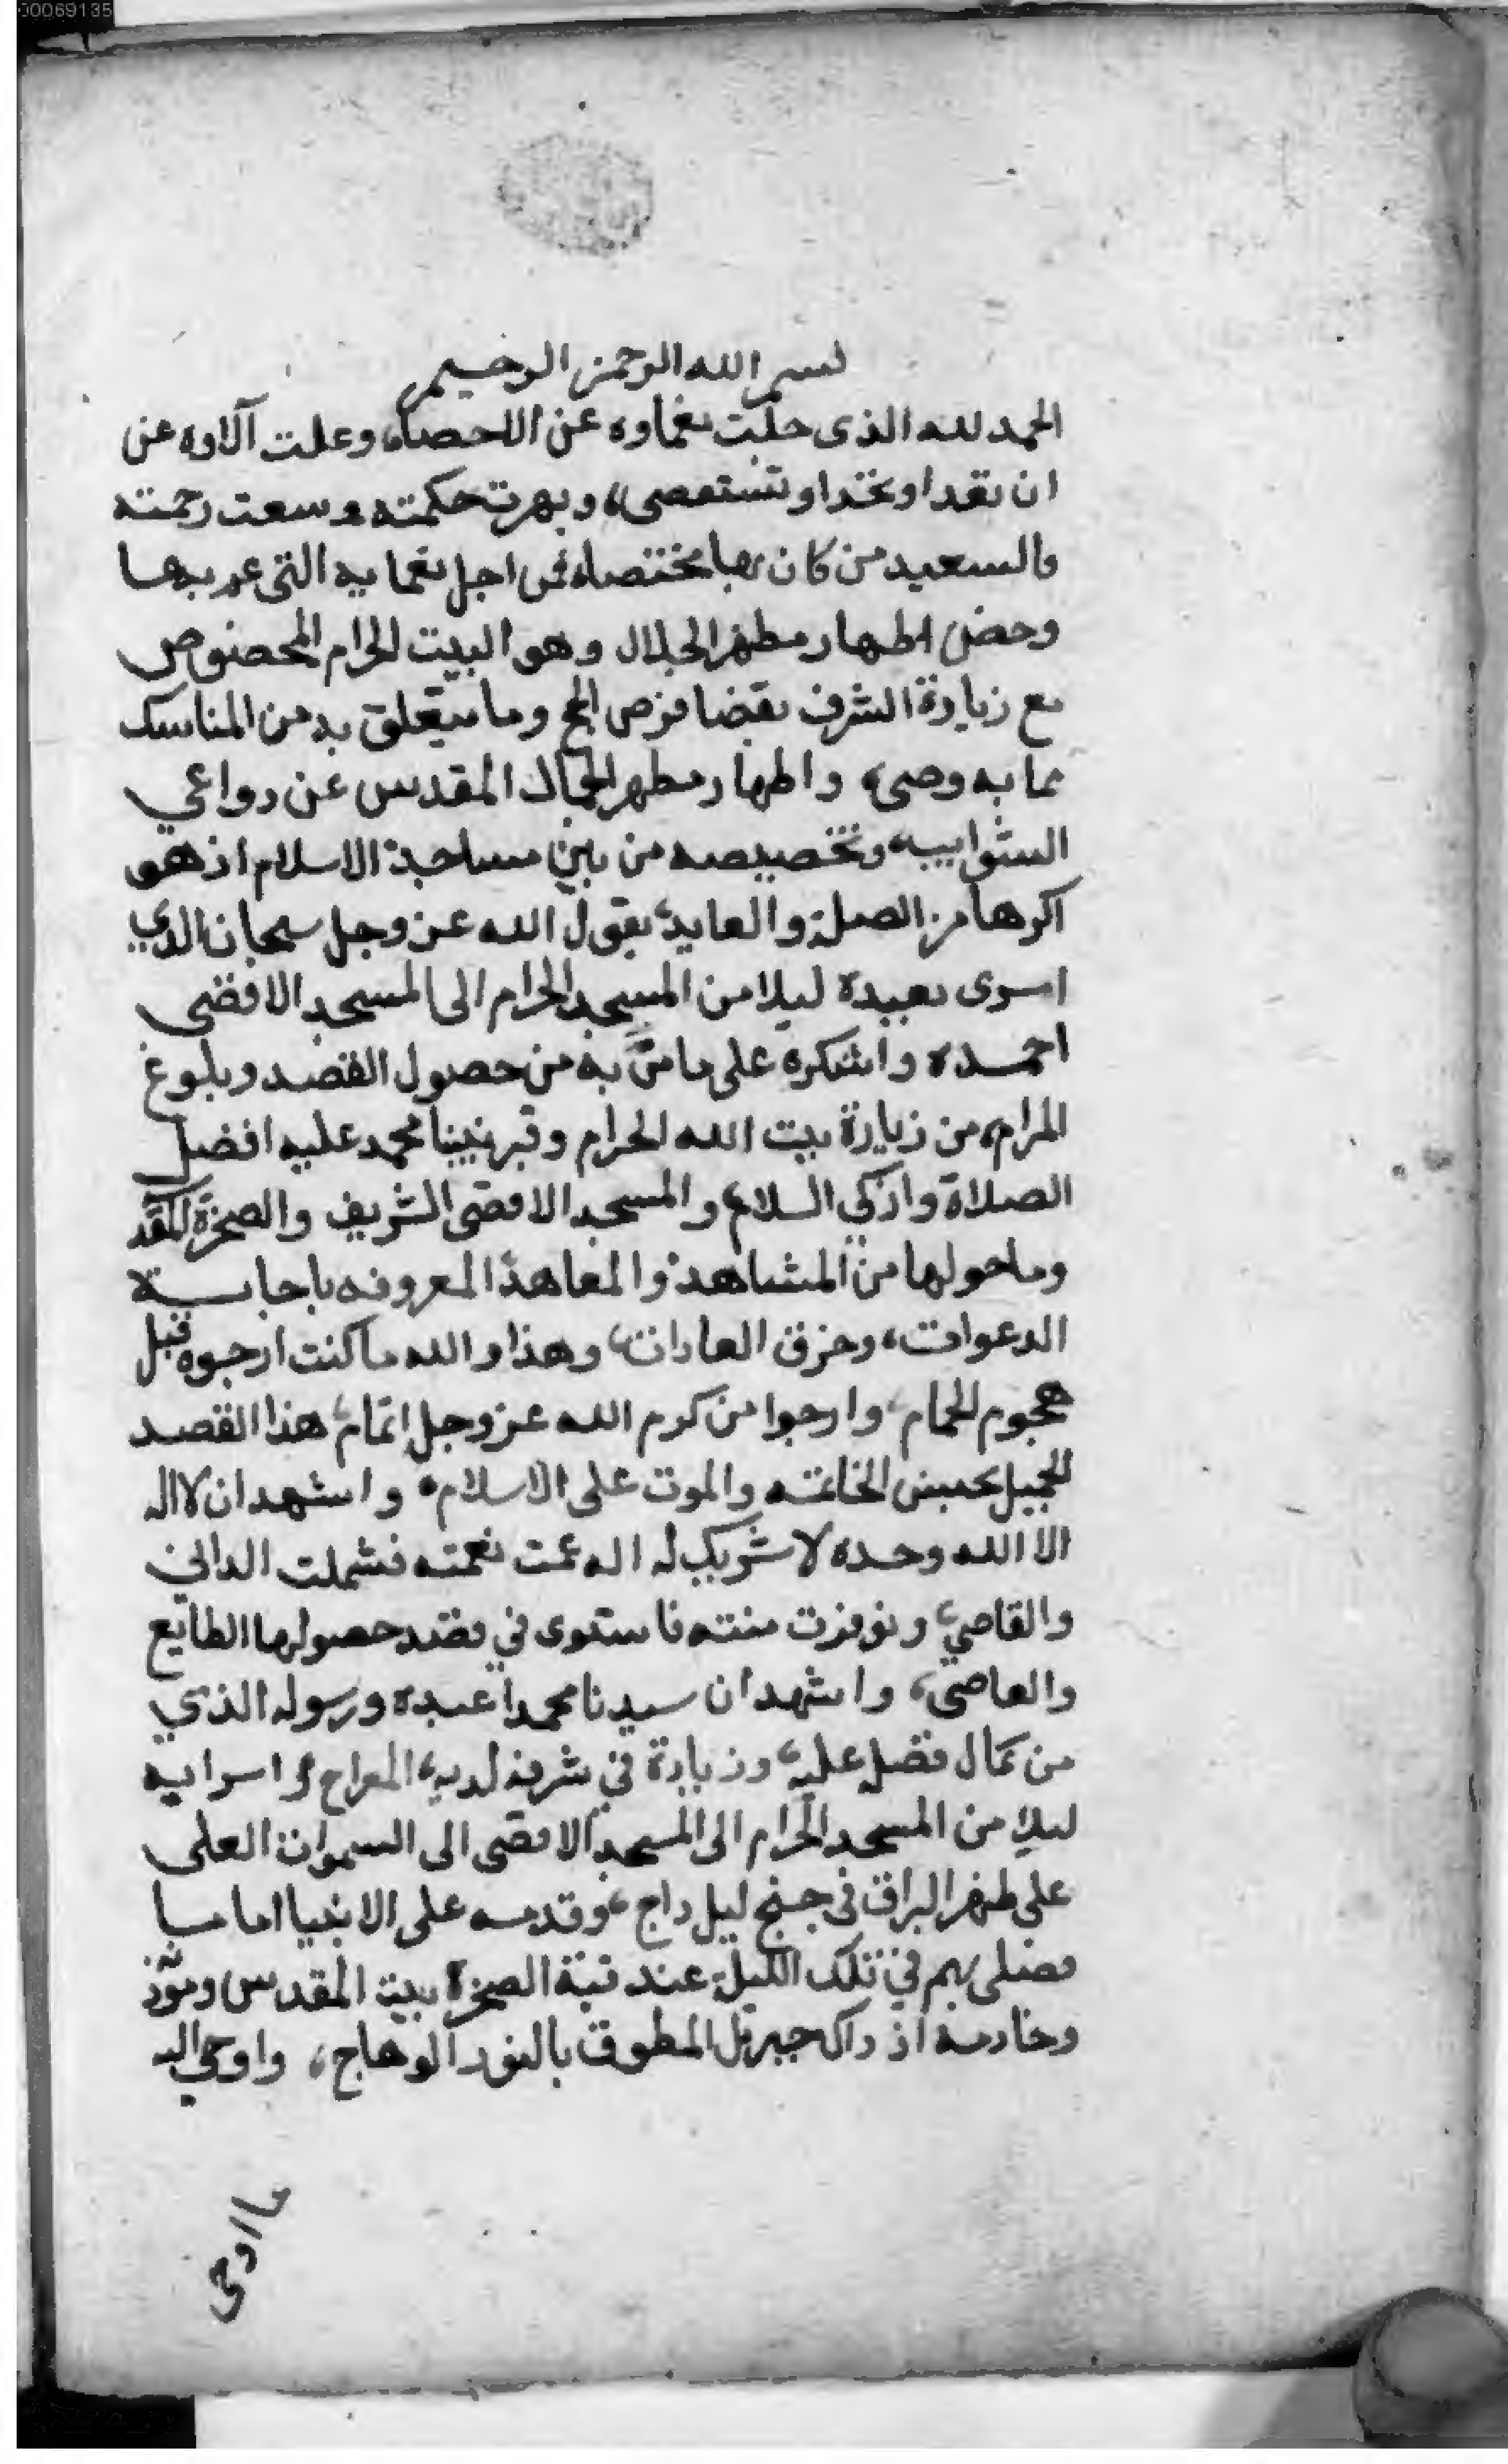 00069135
بسم الله الرحمن الرحيم
الحمد لله الذى جلت نعماوه عن الاحصاء وعلت آلاوه عن
ان تعد او تحد او تستقصى، وبهرت حكمته وسعت رحمته
فالسعيد من كان بها مختصا، فمن اجل نعمايه التى عم بها
وخص اظهار مظهر الجلال وهو البيت الحرام المخصوص
مع زيادة الشرف بقضا فرض الحج وما يتعلق به من المناسك
مما به وصى، واظهار مظهر الجمال المقدس عن دواعي
الشوايب، وتخصيصه من بين مساجد الاسلام اذ هو
اكرها من الصلة والعايد، بقول الله عز وجل سبحان الذي
اسرى بعبده ليلا من المسجد الحرام الى المسجد الاقصى
احمده واشكره على ما منّ به من حصول القصد وبلوغ
المرام، من زيارة بيت الله الحرام وقبر نبينا محمد عليه افضل
الصلاة وازكي السلام، والمسجد الاقصى الشريف والصخرة المقد
وما حولها من المشاهد، والمعاهد المعروفه باجابة
الدعوات، وخرق العادات، وهذا والله ما كنت ارجوه قبل
هجوم الحمام، وارجوا من كرم الله عز وجل اتمام، هذا القصد
الجميل بحسن الخاتمه والموت على الاسلام، واشهد ان لا اله
الا الله وحده لا شريك له اله عمت نعمته فشملت الداني
والقاصي، وتوفرت منته فاستوى في قصد حصولها الطايع
والعاصي، واشهد ان سيدنا محمدا عبده ورسوله الذي
من كمال فضل عليه، وزيادة في شرفه لديه، المعراج واسرايه
ليلا من المسجد الحرام الى المسجد الاقصى الى السموات العلى
على ظهر البراق في جنح ليل داج، وقدمه على الانبيا اماما
فصلى بهم في تلك الليلة عند قبة الصخرة ببيت المقدس
وخادمه اذ ذاك جبريل المطوق بالنور الوهاج، واوحي اليه
ما اوحى